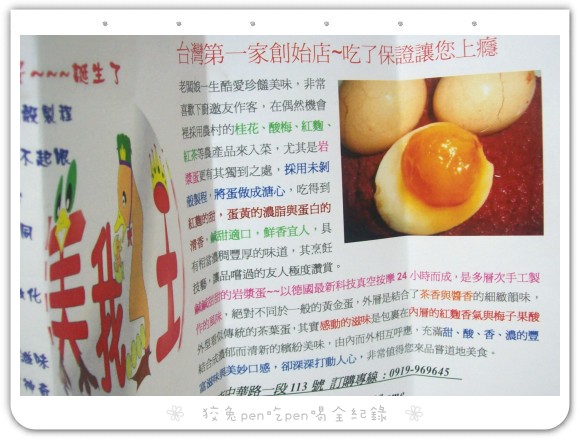 台灣第一家創始店~吃了保證讓您上癮
老闆娘一生酷愛珍饈美味，非常
喜歡下廚邀友作客，在偶然機會
裡採用農村的桂花、酸梅、紅麴、
紅茶等農產品來入菜，尤其是岩
漿蛋更有其獨到之處，採用未剝
殼製程，將蛋做成溏心，吃得到
紅麴的甜，蛋黃的濃脂與蛋白的
清香，鹹甜適口，鮮香宜人，具
有相當濃稠豐厚的味道，其烹飪
技藝，讓品嚐過的友人極度讚賞。
鹹鹹甜甜的岩漿蛋~~以德國最新科技真空按摩24小時而成，是多層次手工製
作的風味，絕對不同於一般的黃金蛋，外層是結合了茶香與醬香的細緻韻味，
外型看似傳統的茶葉蛋，其實感動的滋味是包裹在內層的紅麴香氣與梅子果酸
結合成濃郁而清新的繽紛美味，由內而外相互呼應，充滿甜、酸、香、濃的豐
富滋味與美妙口感，卻深深打動人心，非常值得您來品嘗道地美食。
中華路一段113號 訂購專線：0919-969645
~~~~誕生了
殼製程
不起眼
美我王
狡兔pen吃pen喝全紀錄